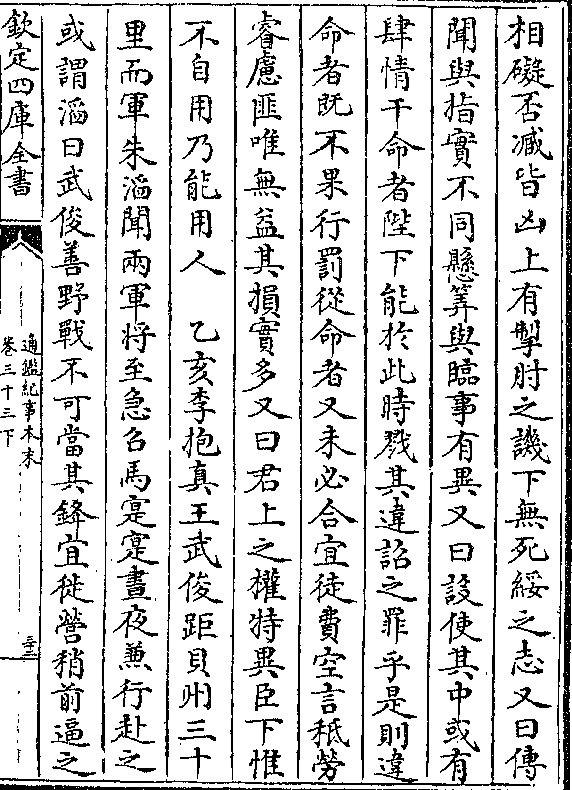 相礙否臧皆凶上有掣肘之譏下無死綏之志又曰傳
聞與指實不同懸筭與臨事有異又曰設使其中或有
肆情干命者陛下能於此時戮其違詔之罪乎是則違
命者既不果行罰從命者又未必合宜徒費空言秪勞
睿慮匪唯無益其損實多又曰君上之權特異臣下惟
不自用乃能用人　乙亥李抱真王武俊距貝州三十
里而軍朱滔聞兩軍將至急召馬寔寔晝夜兼行赴之
或謂滔曰武俊善野戰不可當其鋒宜徙營稍前逼之
欽定四庫全書
通鑑紀事本末
卷三十三下
三十三